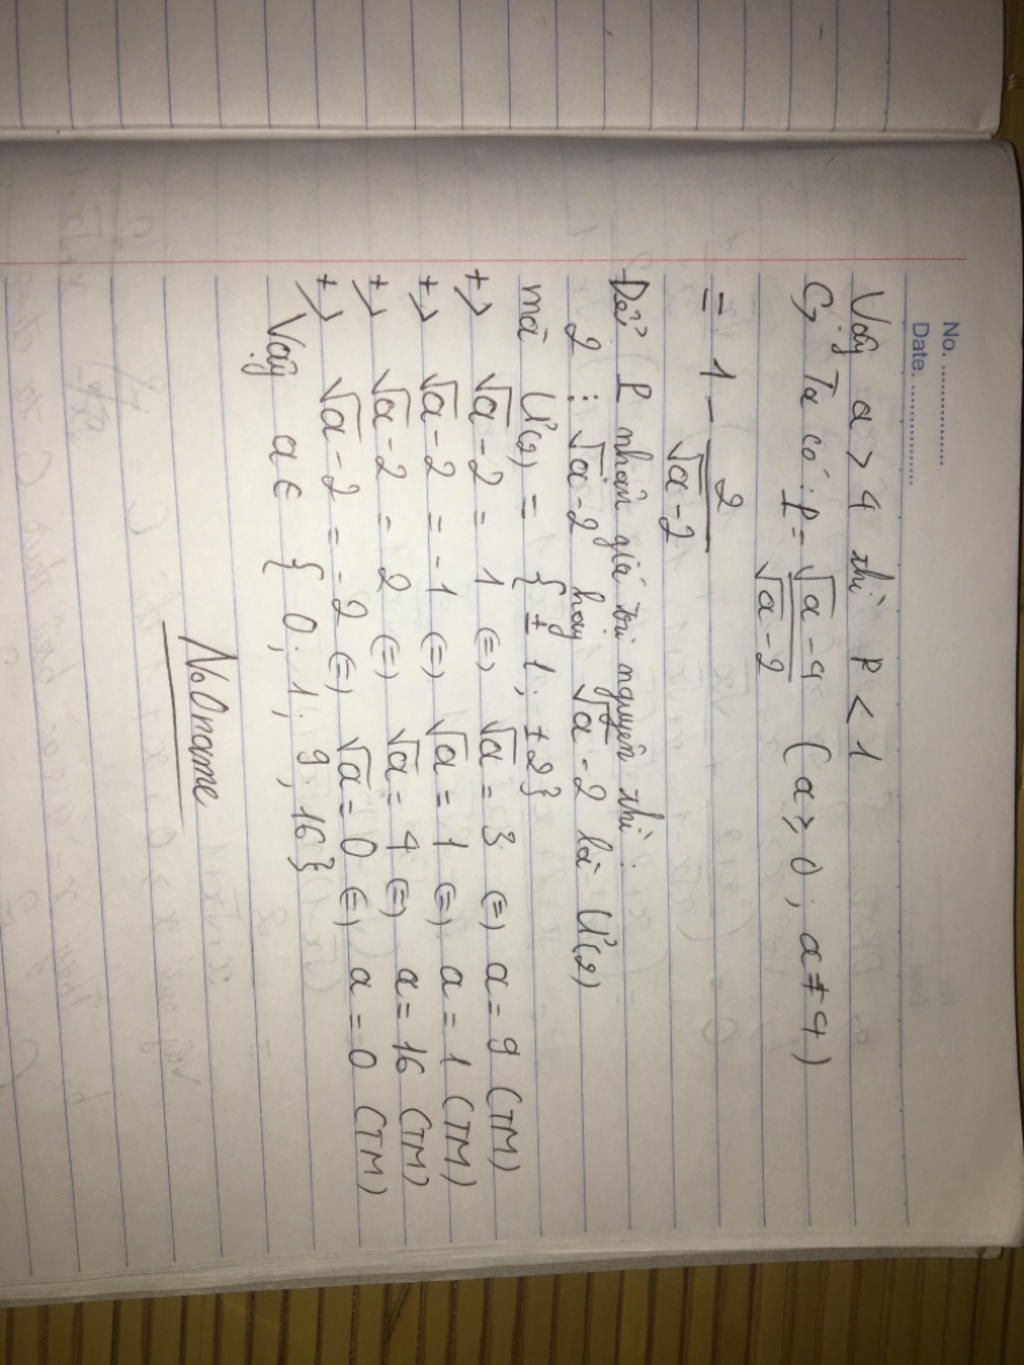 No. ................
Date. ................
Vậy a > 4 thì P < 1
C, Ta có: P = √a - 4 / √a - 2 ( a ≥ 0 ; a ≠ 4 )
= 1 - 2 / √a - 2
Để P nhận giá trị nguyên thì:
2 ⋮ √a - 2 hay √a - 2 là Ư(2)
mà Ư(2) = { ± 1; ± 2}
+, √a - 2 = 1 (=) √a = 3 (=) a = 9 (TM)
+, √a - 2 = -1 (=) √a = 1 (=) a = 1 (TM)
+, √a - 2 = 2 (=) √a = 4 (=) a = 16 (TM)
+, √a - 2 = -2 (=) √a = 0 (=) a = 0 (TM)
Vậy a ∈ { 0; 1; 9; 16}
No0name